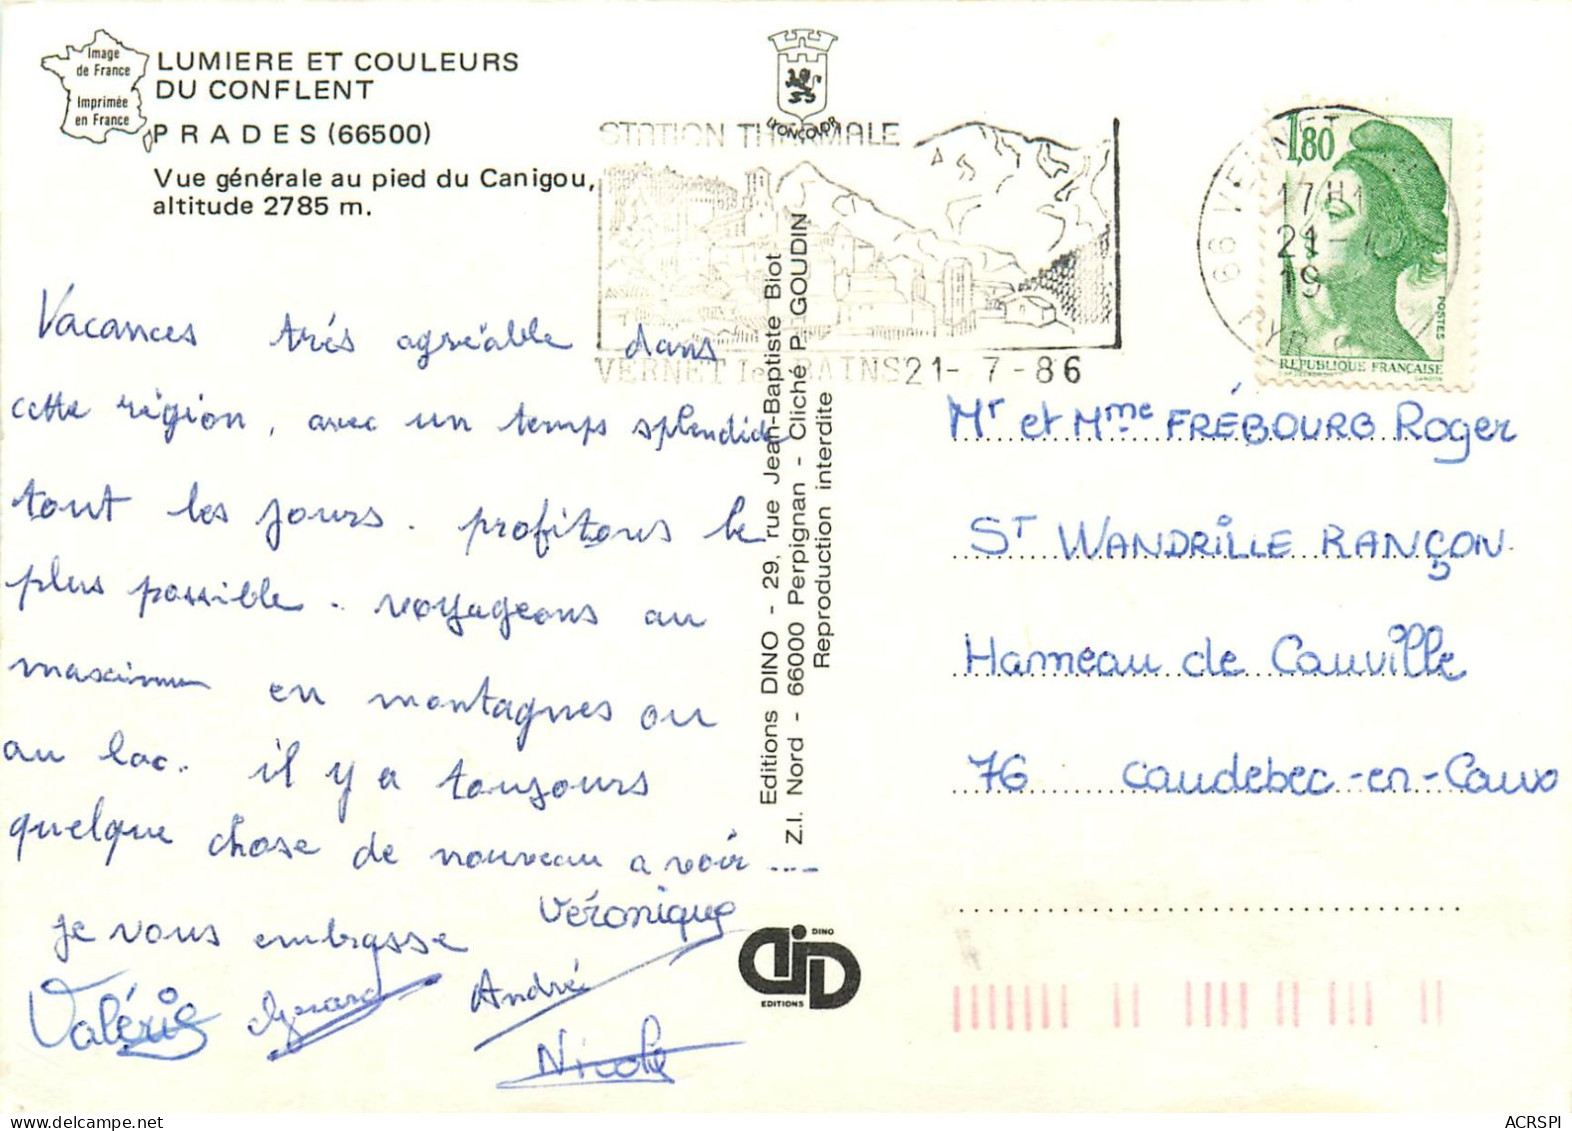 Image
de France
Imprimée
en France
LUMIERE ET COULEURS
DU CONFLENT
PRADES (66500)
Vue générale au pied du Canigou,
altitude 2785 m.
LYONCOUR
STATION THERMALE
VERNET les BAINS 21-7-86
66 VERNET
17H
21-
19
PYR
1,80
POSTES
REPUBLIQUE FRANÇAISE
Vacances très agréable dans
cette région, avec un temps splendide
tout les jours. profitons le
plus possible. voyageons au
maximum en montagnes ou
au lac. il y a toujours
quelque chose de nouveau a voir ....
je vous embrasse Véronique
Valérie Gérard André
Nicole
Editions DINO - 29, rue Jean-Baptiste Biot
Z.I. Nord - 66000 Perpignan - Cliché P. GOUDIN
Reproduction interdite
DINO
EDITIONS
Mr et Mme FRÉBOURG Roger
ST WANDRILLE RANÇON
Hameau de Cauville
76 Caudebec-en-Caux
ACRSPI